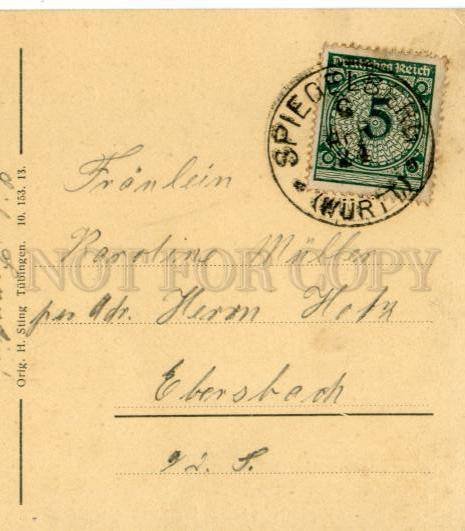 Deutsches Reich
5
SPIEGELB
(WÜRTT.)
Fräulein
Karoline Müller
per Adr. Herrn Hotz
Ebersbach
NOT FOR COPY
Orig. H. Sting Tübingen. 10. 153. 13.